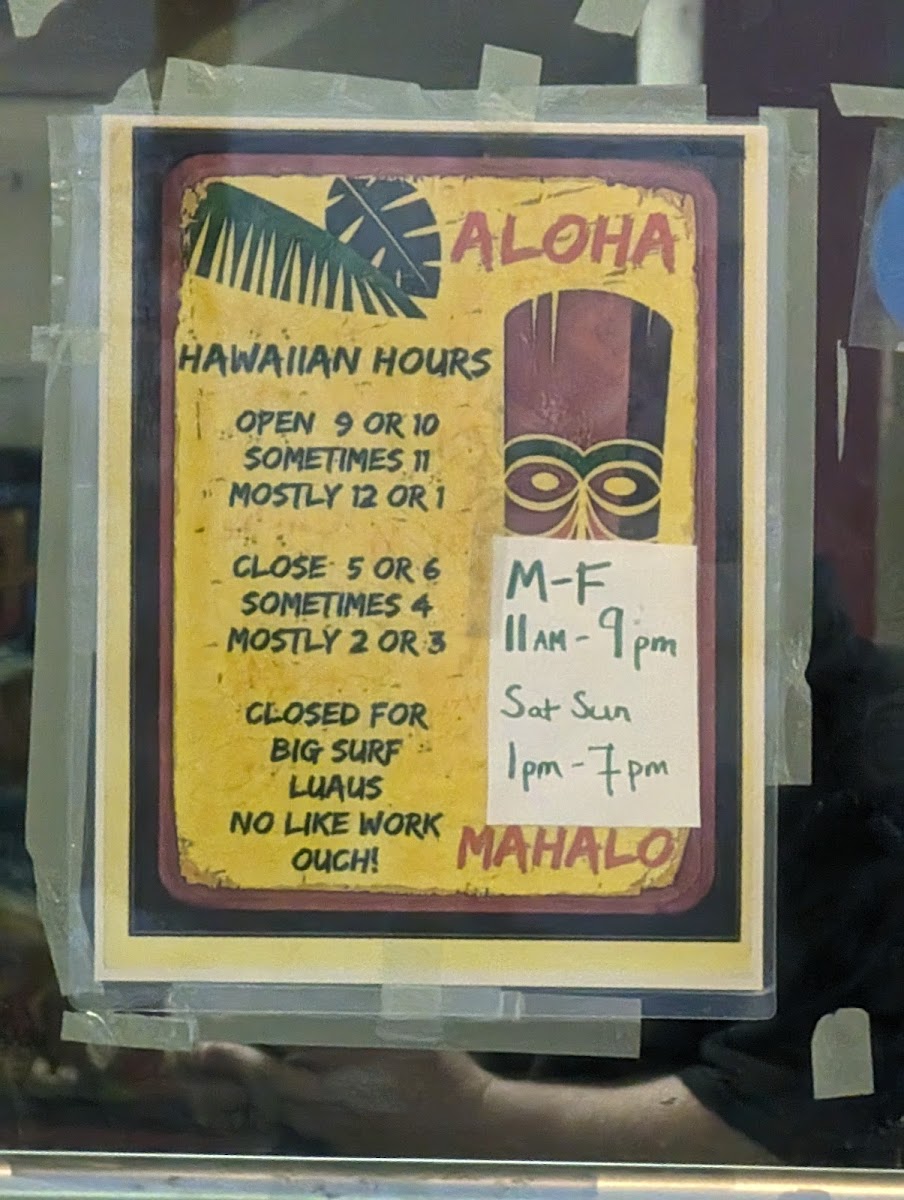 ALOHA
HAWAIIAN HOURS
OPEN 9 OR 10
SOMETIMES 11
MOSTLY 12 OR 1
CLOSE 5 OR 6
SOMETIMES 4
MOSTLY 2 OR 3
CLOSED FOR
BIG SURF
LUAUS
NO LIKE WORK
OUCH!
M-F
11AM - 9pm
Sat Sun
1pm - 7pm
MAHALO